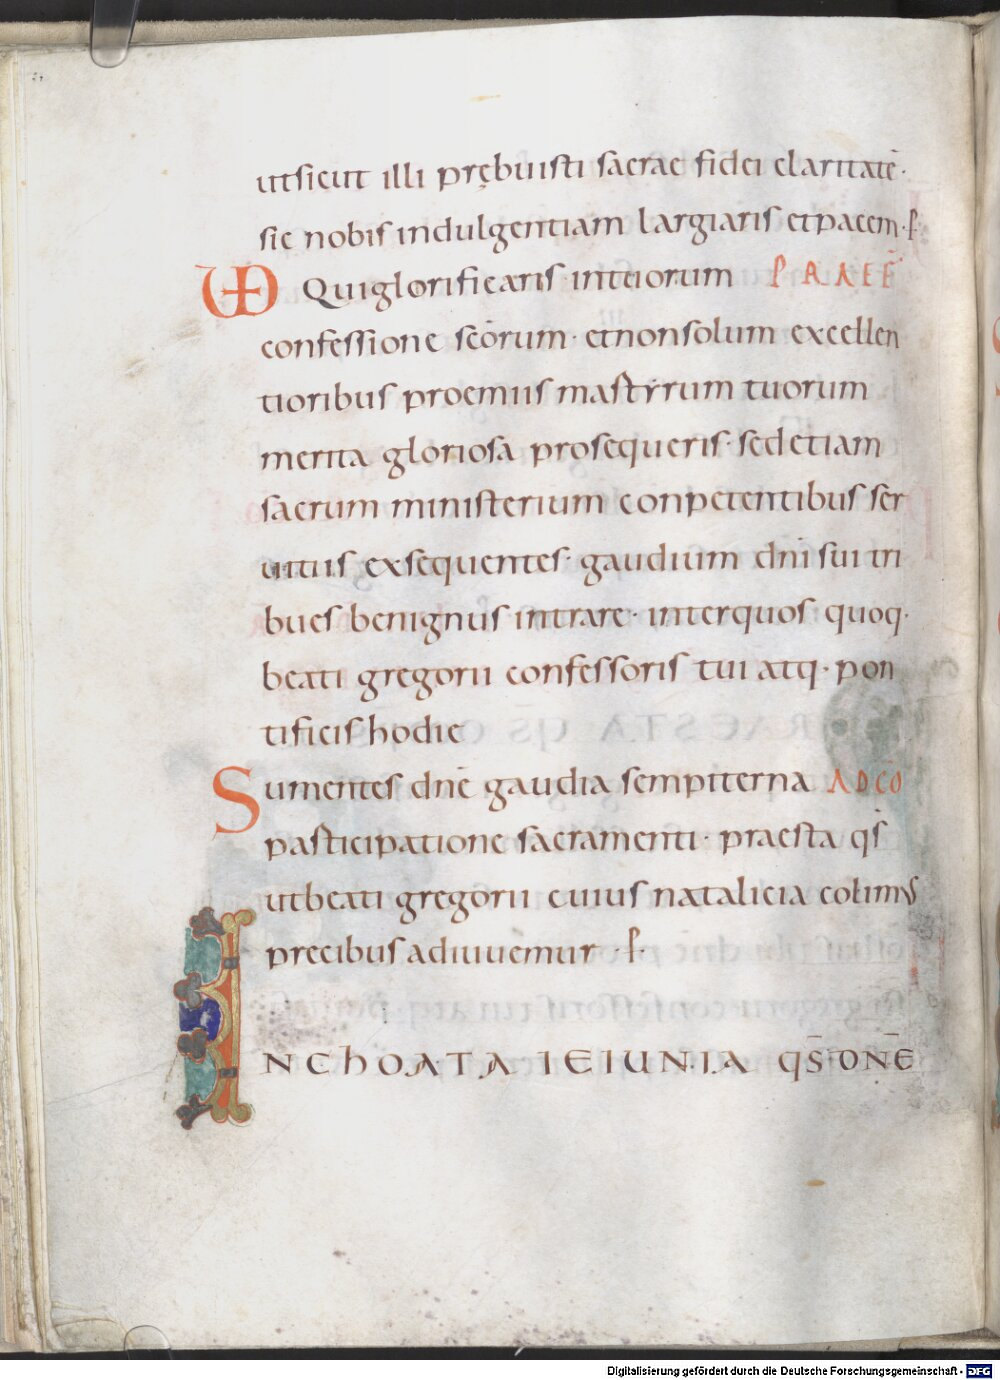 utsicut illi prębuisti sacrae fidei claritatē·
sic nobis indulgentiam largiaris etpacem·ꝑ
VD Quiglorificaris·intuorum PRAEF̄
confessione scōrum· etnonsolum excellen
tioribus proemiis martyrum tuorum
merita gloriosa prosequeris· sedetiam
sacrum ministerium conpetentibus ser
uitiis exsequentes· gaudium dn̄i sui tri
bues benignus intrare· interquos quoq·
beati gregorii confessoris tui atq· pon
tificis hodie
Sumentes dn̄e gaudia sempiterna ADCŌ
participatione sacramenti· praesta qs̄
utbeati gregorii cuius natalicia colimus
precibus adiuuemur·
INCHOATA IEIUNIA QS̄ DN̄E
Digitalisierung gefördert durch die Deutsche Forschungsgemeinschaft - DFG